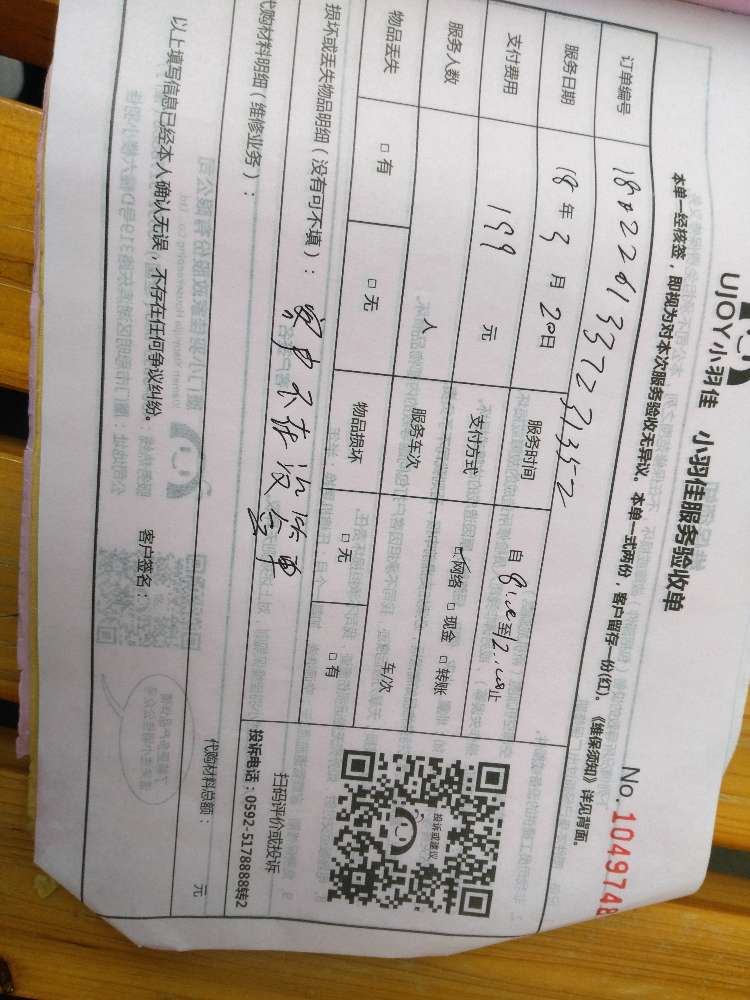 UJOY小羽佳 小羽佳服务验收单
No. 1049748
本单一经核签，即视为对本次服务验收无异议。本单一式两份，客户留存一份(红)。《维保须知》详见背面。
订单编号
服务日期 18 年 3 月 20 日 服务时间 自 8:00 到 12:00 止
支付费用 199 元 支付方式 网络 □ 现金 □ 转账
服务人数 人 服务车次 车/次
物品丢失 □ 有 □ 无 物品损坏 □ 无 □ 有
损坏或丢失物品明细（没有可不填）：
客户不在没
代购材料明细（维修业务）：
代购材料总额： 元
以上填写信息已经本人确认无误，不存在任何争议纠纷。 客户签名：
投诉或建议
扫码评价或投诉
投诉电话：0592-5178888转2